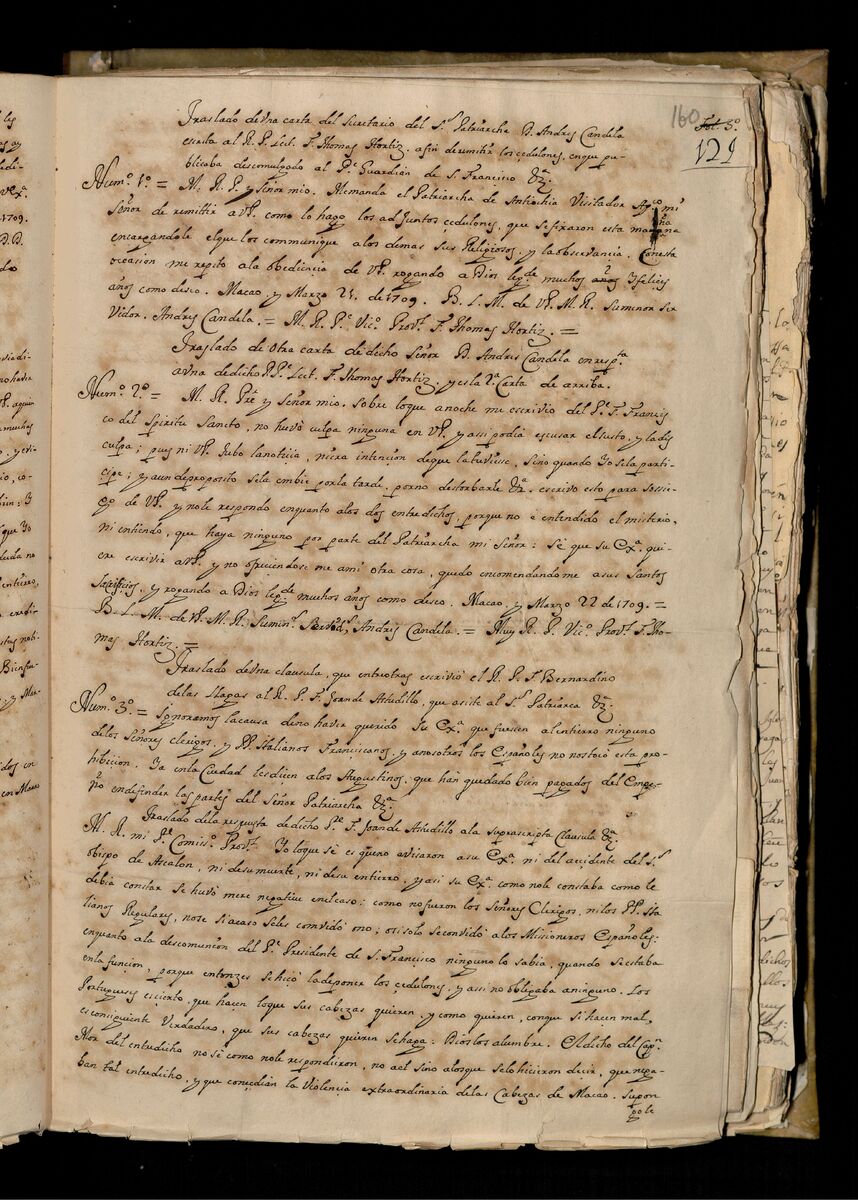 160
Fol. 3º.
121
Traslado de vna carta del Secretario del Sr. Patriarcha D. Andres Candela
escrita al R. P. Lect. F. Thomas Hortiz, afin de remitir los cedulones, enque pu-
blicaba descomulgado al Pe. Guardián de S. Francisco &a.
Numº. 1º. = M. R. P. y Señor mio. Memanda el Patriarcha de Antiochia Visitador Apco. mi
Señor de remittir a vP. como lo hago los adjuntos cedulones, que se fixaron esta mañana
encargandole el que los communique alos demas sus Religiosos, y la observancia. Conesta
ocasion me repito ala obediencia de vP. rogando a Dios le gde. muchos años y felices
años como deseo. Macao, y Marzo 21. de 1709. B. L. M. de vP. M. R. Su menor Ser
vidor. Andres Candela. = M. R. Pe. Vico. Provl. F. Thomas Hortiz. =
Traslado de otra carta de dicho Señor D. Andres Candela en respta.
a vna de dicho R. Pe. Lect. F. Thomas Hortiz, y es la 2a. Carta de arriba.
Numº. 2º. = M. R. Pre. y Señor mio. Sobre loque anoche me escrivio del Pe. F. Francis
co del Spiritu Sancto, no huvó culpa ninguna en vP. y assi podia escusar el susto, y la dis
culpa; pues ni vP. tubo la noticia, ni era intencion deque la tuviesse, sino quando yo se la parti-
cipe; y aun de proposito se la embie por la tarde, por no destorbarle &a. escrivo esto para sossie-
go de vP. y no le respondo enquanto alos dos entredichos, porque no è entendido el misterio,
ni entiendo, que haya ninguno por parte del Patriarcha mi Señor: Sè que su Exa. qui-
ere escrivir a vP. y no ofreciendose me ami otra cosa, quedo encomendandome a sus Santos
Sacrificios, y rogando a Dios le gde. muchos años como deseo. Macao, y Marzo 22 de 1709. =
B. L. M. de vP. M. R. Su minr. Servidr. Andres Candela. = Muy R. P. Vico. Provl. F. Tho-
mas Hortiz. =
Traslado de vna clausula, que entre otras escrivió el R. P. F. Bernardino
de las Llagas al R. P. F. Joan de Astudillo, que asiste al Sr. Patriarca &a.
Numº. 3º. = Ignoramos la causa de no haver querido Su Exa. que fuessen al entierro ninguno
de los Señores clerigos, y PP. Italianos Franciscanos, y a nosotros los Españoles no nos tocó esta pro-
hibicion. Ya en la Ciudad les dicen alos Augustinos, que han quedado bien pagados del Empe-
ño en defender las partes del Señor Patriarcha &a.
Traslado dela respuesta de dicho Pe. F. Joan de Astudillo a la suprascripta Clausula &a.
M. R. mi Pe. Comiso. Provl. Yo loque sè es que no avisaron a su Exa. ni del accidente del Sr.
obispo de Ascalon, ni de su muerte, ni de su entierro, y asi su Exa. como no le constaba como le
debia constar se huvó mere negative en el caso: como no fueron los Señores Clerigos, ni los PP. Ita
lianos Regulares, no se si acaso se les convidó ò no; ò si solo se convidó a los Missioneros Españoles:
enquanto a la descomunion del Pe. Presidente de S. Francisco ninguno lo sabia, quando se estaba
en la funcion, porque entonzes se hizó la de poner los cedulones, y assi no obligaba a ninguno. Los
Portugueses es cierto, que hacen loque sus cabezas quieren, y como quieren, conque si hacen mal,
es consiguiente Verdadero, que sus cabezas quieren se haga: Dios los alumbre. Al dicho del Capn.
Mor del entredicho no sè como no le respondieron, no aèl sino alos que se lo hicieron decir, que nega-
ban tal entredicho, y que concedian la Violencia extraordinaria de las Cabezas de Macao. Supon
gole